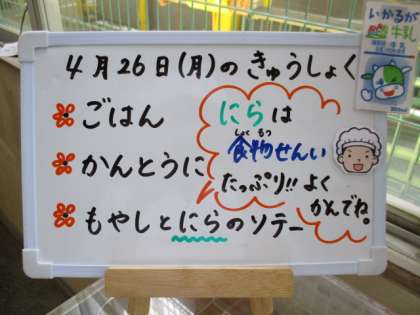 4月26日(月)のきゅうしょく
ごはん
かんとうに
もやしとにらのソテー
にらは
しょくもつ
食物せんい
たっぷり!!よく
かんでね。
いかるが
牛乳